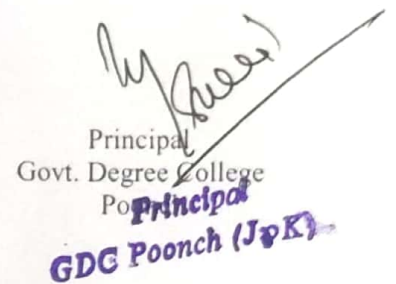 Principal
Govt. Degree College
Po
Principal
GDC Poonch (J&K)